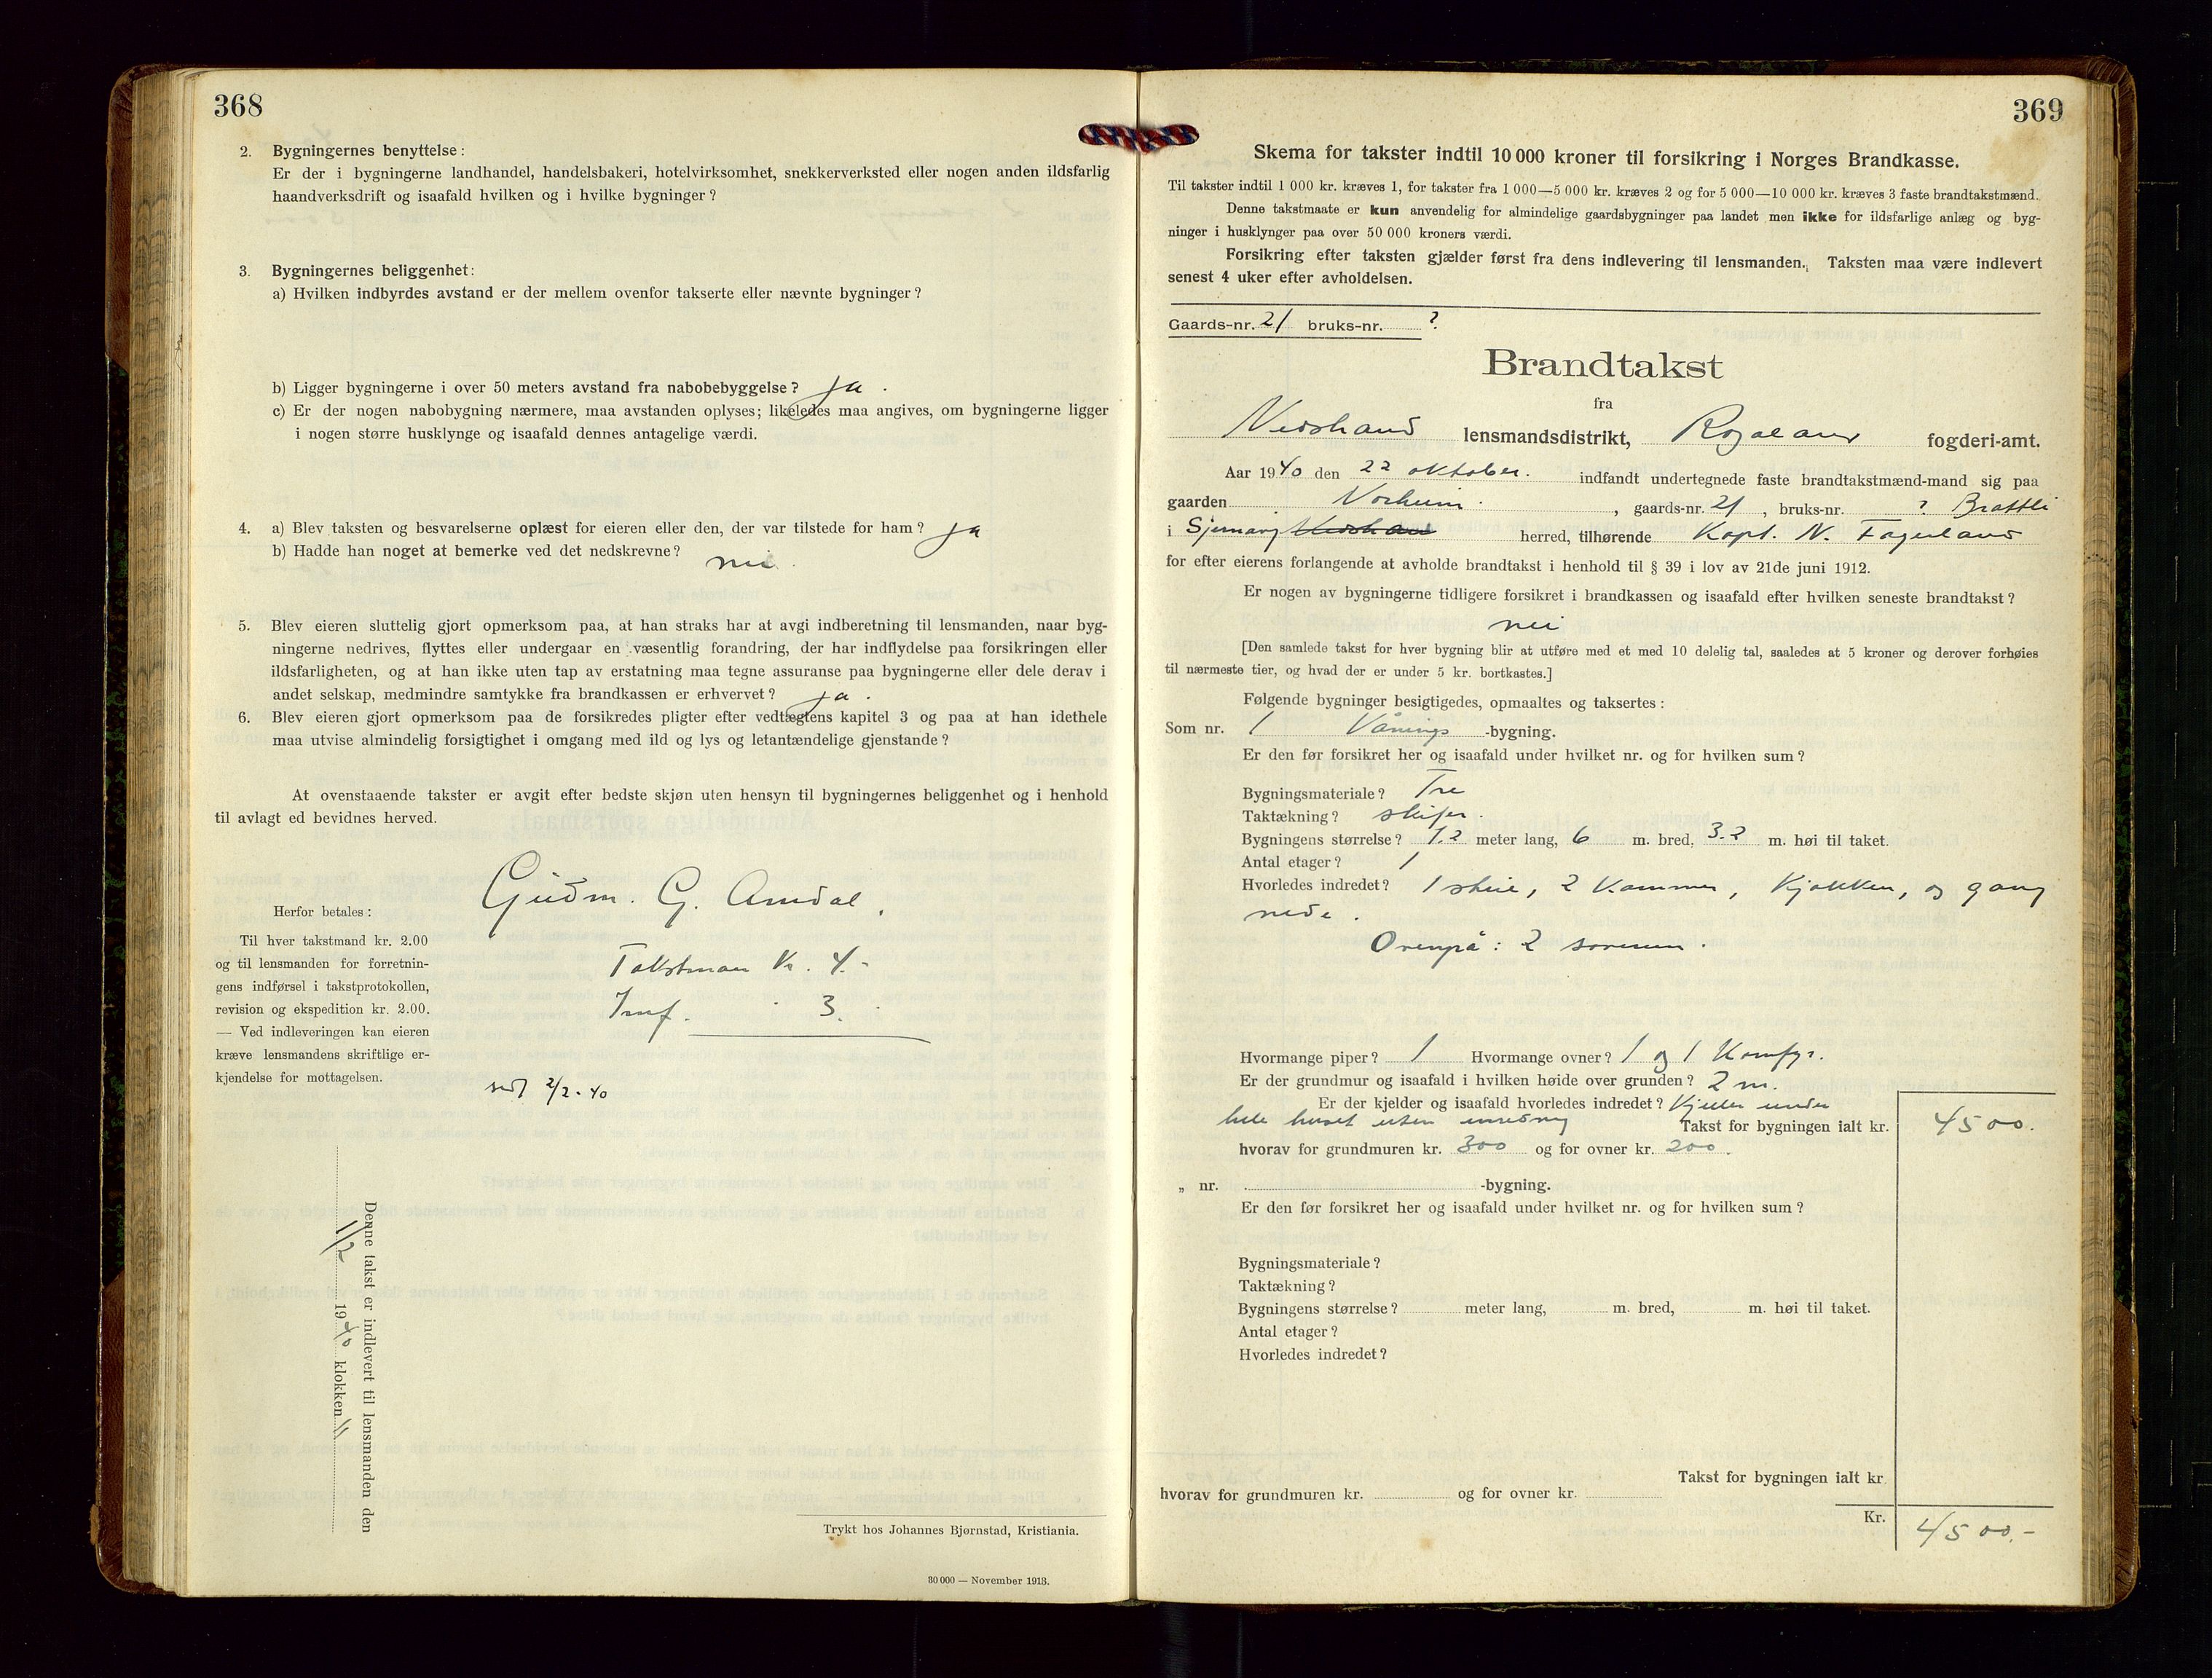 368
2. Bygningernes benyttelse:
Er der i bygningerne landhandel, handelsbakeri, hotelvirksomhet, snekkerverksted eller nogen anden ildsfarlig
haandverksdrift og isaafald hvilken og i hvilke bygninger?
3. Bygningernes beliggenhet:
a) Hvilken indbyrdes avstand er der mellem ovenfor takserte eller nævnte bygninger?
b) Ligger bygningerne i over 50 meters avstand fra nabobebyggelse? ja.
c) Er der nogen nabobygning nærmere, maa avstanden oplyses; likeledes maa angives, om bygningerne ligger
i nogen større husklynge og isaafald dennes antagelige værdi.
4. a) Blev taksten og besvarelserne oplæst for eieren eller den, der var tilstede for ham? ja
b) Hadde han noget at bemerke ved det nedskrevne? nei
5. Blev eieren sluttelig gjort opmerksom paa, at han straks har at avgi indberetning til lensmanden, naar byg-
ningerne nedrives, flyttes eller undergaar en væsentlig forandring, der har indflydelse paa forsikringen eller
ildsfarligheten, og at han ikke uten tap av erstatning maa tegne assuranse paa bygningerne eller dele derav i
andet selskap, medmindre samtykke fra brandkassen er erhvervet? ja.
6. Blev eieren gjort opmerksom paa de forsikredes pligter efter vedtægtens kapitel 3 og paa at han idethele
maa utvise almindelig forsigtighet i omgang med ild og lys og letantændelige gjenstande?
At ovenstaaende takster er avgit efter bedste skjøn uten hensyn til bygningernes beliggenhet og i henhold
til avlagt ed bevidnes herved.
Gudm. G. Amdal.
Herfor betales:
Til hver takstmand kr. 2.00
og til lensmanden for forretnin-
gens indførsel i takstprotokollen,
revision og ekspedition kr. 2.00.
— Ved indleveringen kan eieren
kræve lensmandens skriftlige er-
kjendelse for mottagelsen.
Takstman Kr. 4.-
Innf. 3.
2/2-40
Denne takst er indlevert til lensmanden den
1/2 1940 klokken 11
Trykt hos Johannes Bjørnstad, Kristiania.
30 000 — November 1913.
369
Skema for takster indtil 10 000 kroner til forsikring i Norges Brandkasse.
Til takster indtil 1 000 kr. kræves 1, for takster fra 1 000—5 000 kr. kræves 2 og for 5 000—10 000 kr. kræves 3 faste brandtakstmænd.
Denne takstmaate er kun anvendelig for almindelige gaardsbygninger paa landet men ikke for ildsfarlige anlæg og byg-
ninger i husklynger paa over 50 000 kroners værdi.
Forsikring efter taksten gjælder først fra dens indlevering til lensmanden. Taksten maa være indlevert
senest 4 uker efter avholdelsen.
Gaards-nr. 21 bruks-nr. ?
Brandtakst
fra
Nedstrand lensmandsdistrikt, Rogaland fogderi-amt.
Aar 1940 den 22 oktober. indfandt undertegnede faste brandtakstmænd-mand sig paa
gaarden , gaards-nr. 21, bruks-nr. ? Brattli
i Sjernarøy herred, tilhørende Kapt. N. Fagerland
for efter eierens forlangende at avholde brandtakst i henhold til § 39 i lov av 21de juni 1912.
Er nogen av bygningerne tidligere forsikret i brandkassen og isaafald efter hvilken seneste brandtakst?
nei
[Den samlede takst for hver bygning blir at utføre med et med 10 delelig tal, saaledes at 5 kroner og derover forhøies
til nærmeste tier, og hvad der er under 5 kr. bortkastes.]
Følgende bygninger besigtigedes, opmaaltes og taksertes:
Som nr. 1 Vånings-bygning.
Er den før forsikret her og isaafald under hvilket nr. og for hvilken sum?
Bygningsmateriale? Tre
Taktækning? skifer.
Bygningens størrelse? 7.2 meter lang, 6 m. bred, 3.2 m. høi til taket.
Antal etager? 1
Hvorledes indredet? 1 stue, 2 kammer, kjøkken, og gang
nede.
Ovenpå: 2 soverum.
Hvormange piper? 1 Hvormange ovner? 1 og 1 Komfyr.
Er der grundmur og isaafald i hvilken høide over grunden? 2 m.
Er der kjelder og isaafald hvorledes indredet? Kjeller under
hele huset uten innredning Takst for bygningen ialt kr. 4500.
hvorav for grundmuren kr. 300 og for ovner kr. 200.
„ nr. -bygning.
Er den før forsikret her og isaafald under hvilket nr. og for hvilken sum?
Bygningsmateriale?
Taktækning?
Bygningens størrelse? meter lang, m. bred, m. høi til taket.
Antal etager?
Hvorledes indredet?
Takst for bygningen ialt kr.
hvorav for grundmuren kr. og for ovner kr.
Kr. 4500.-